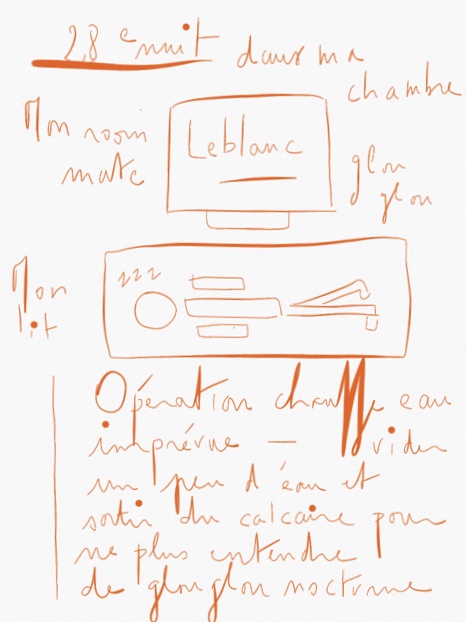 28 e nuit dans ma
chambre
Mon room
mate
Leblanc
glou
glou
Mon
lit
zzz
Opération chauffe eau
imprévue — vider
un peu d'eau et
sortir du calcaire pour
ne plus entendre
de glouglou nocturne